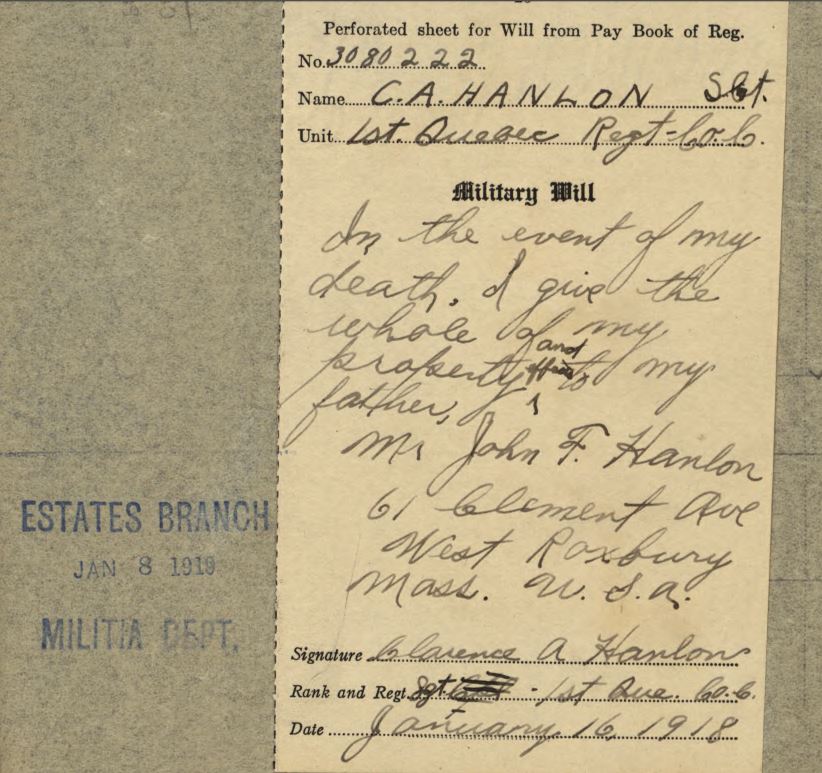 Perforated sheet for Will from Pay Book of Reg.
No. 3080222
Name C.A. HANLON Sgt.
Unit 1st. Quebec Regt-Co. C.
Military Will
In the event of my
death. I give the
whole of my
property and effects to my
father,
Mr John F. Hanlon
61 Clement Ave
West Roxbury
Mass. U.S.A.
ESTATES BRANCH
JAN 8 1919
MILITIA DEPT.
Signature Clarence A Hanlon
Rank and Regt. Sgt - 1st Que. Co. C.
Date January, 16, 1918